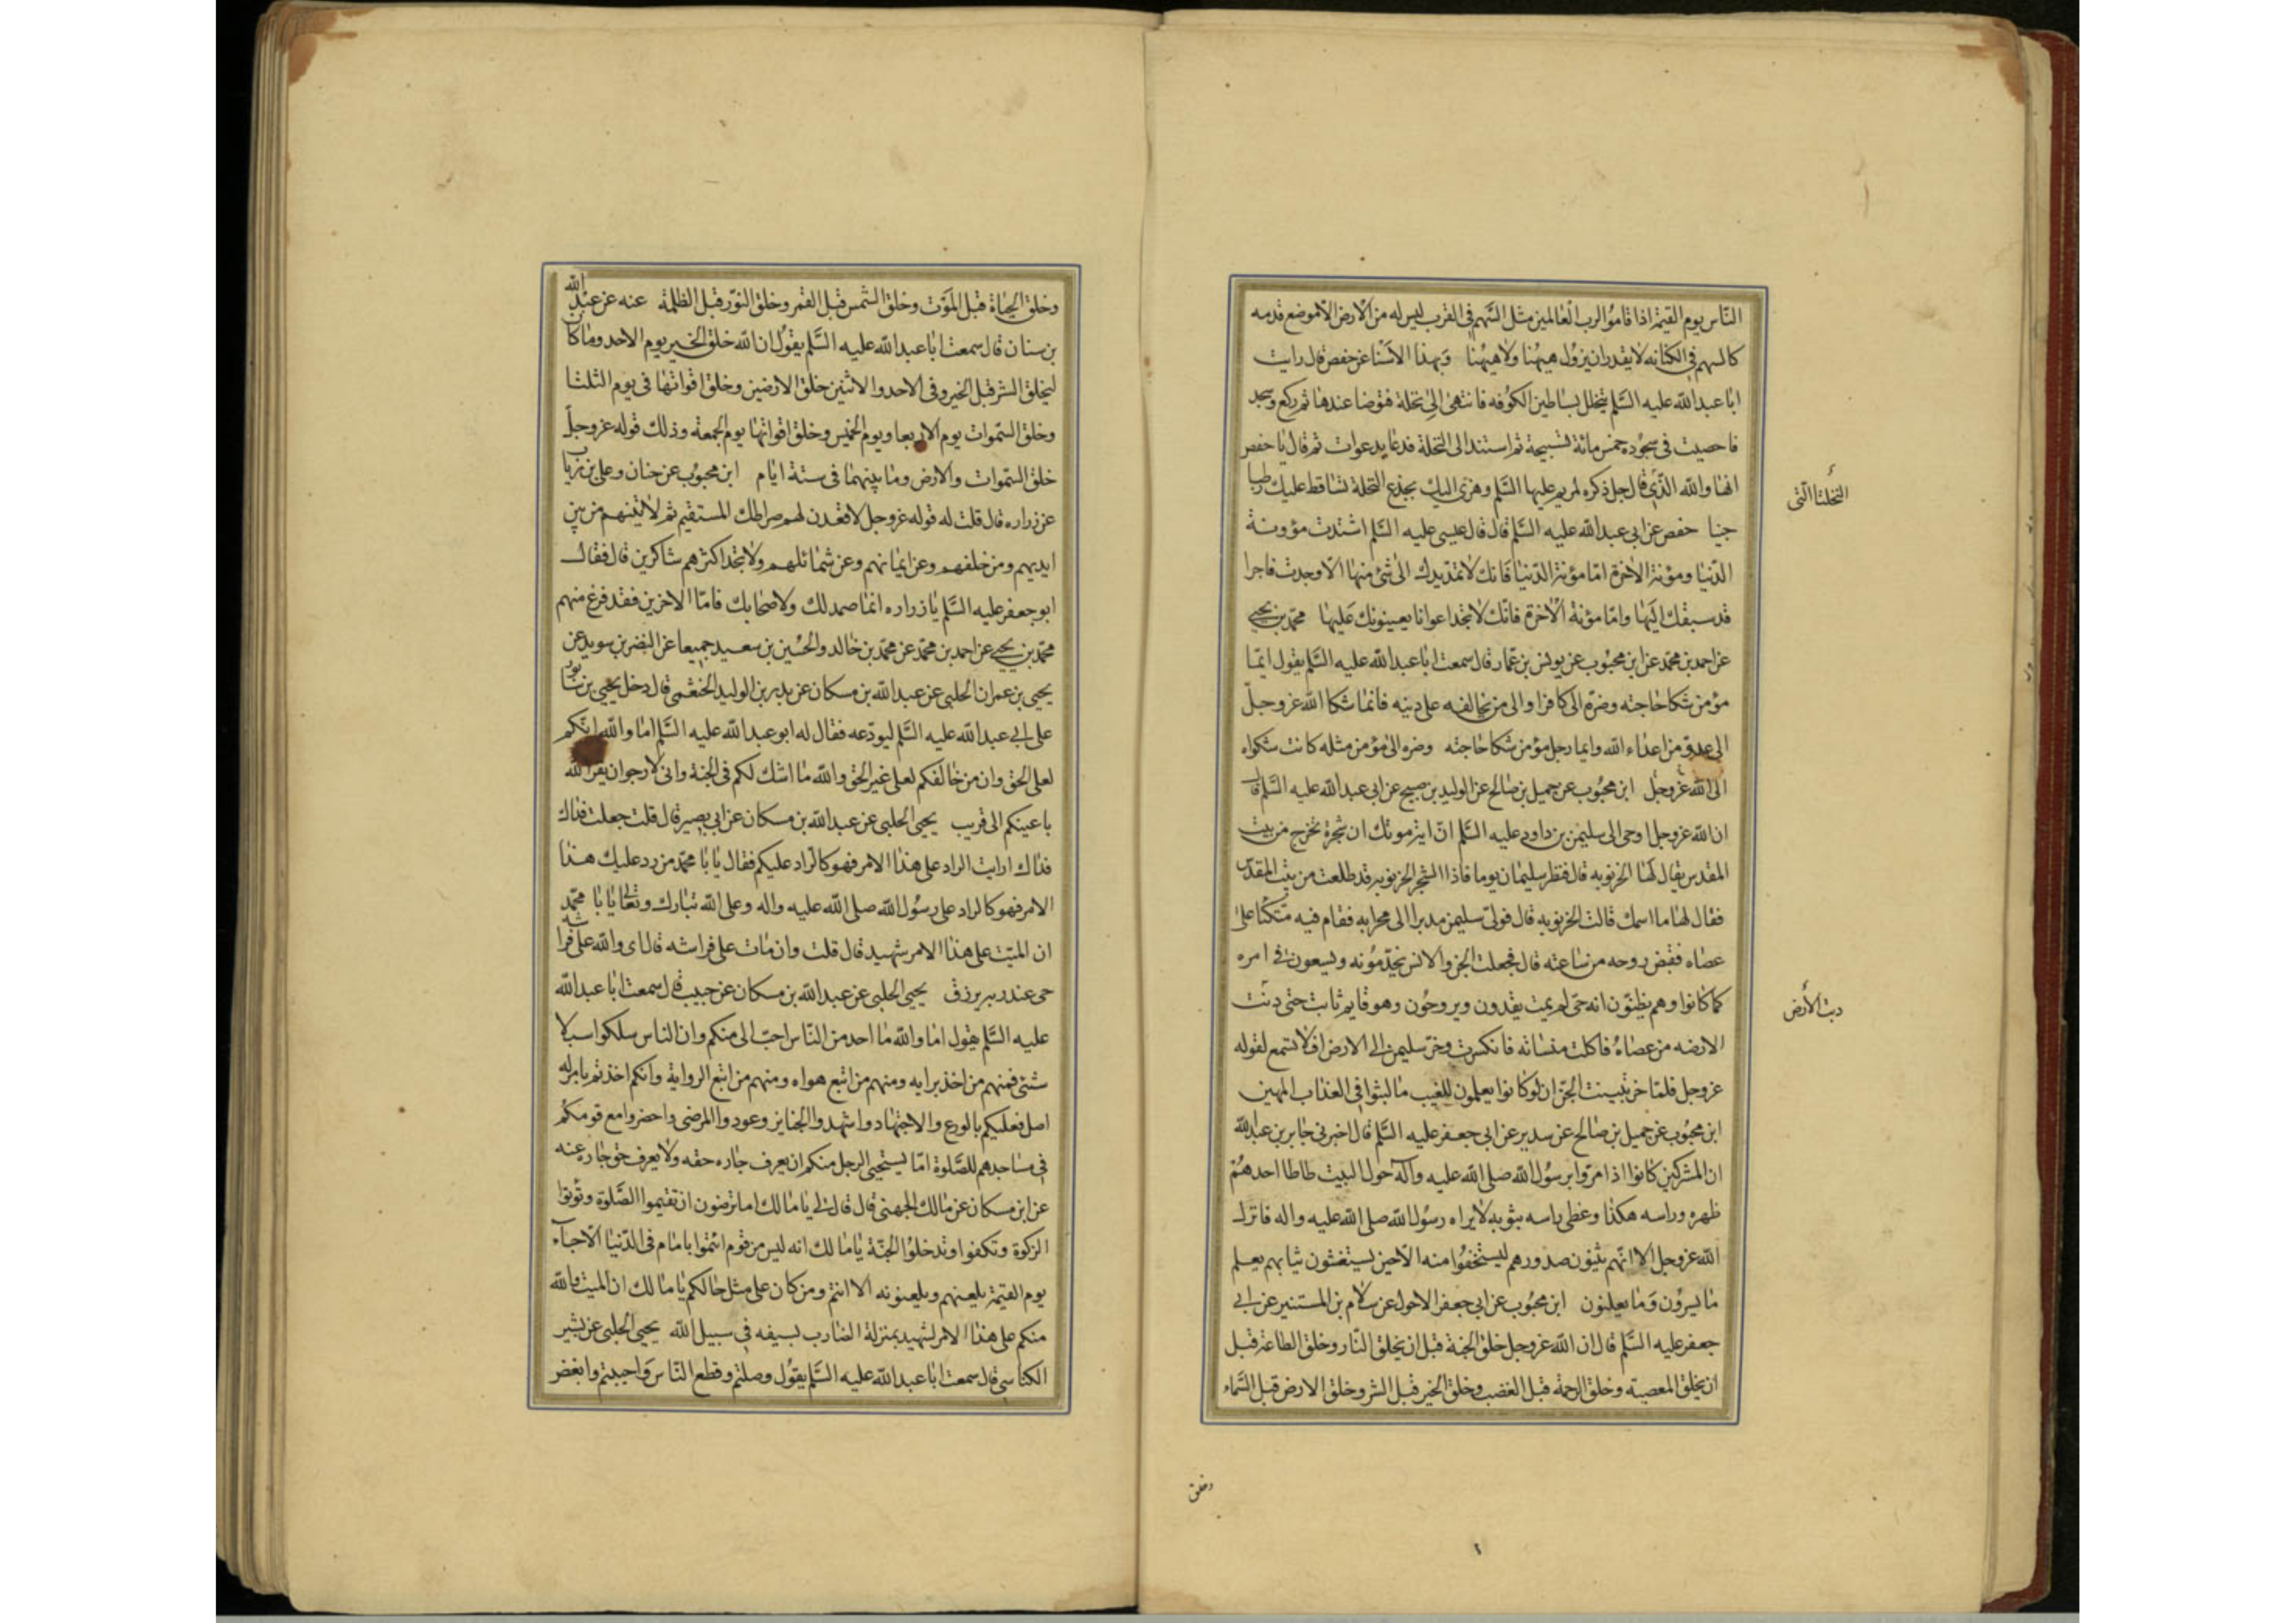 الناس يوم القيمة اذا قاموا لرب العالمين مثل السهم في القرب ليس له من الارض الا موضع قدمه
كالسهم في الكنانه لا يقدر ان يزول هيهنا ولا هيهنا وبهذا الاسنا عن حفص قال رايت
ابا عبد الله عليه السلم يتخلل بساطين الكوفه فانتهى الى نخلة فتوضا عندها ثم ركع وسجد
فاحصيت في سجوده خمس مائة تسبيحة ثم استند الى النخلة فدعا بدعوات ثم قال يا حفص
انها والله الذي قال جل ذكره لمريم عليها السلم وهزي اليك بجذع النخلة تساقط عليك رطبا
النخلة التي
جنيا حفص عن ابي عبد الله عليه السلم قال قال عيسى عليه السلم اشتدت مؤونة
الدنيا ومؤنة الاخرة اما مؤنة الدنيا فانك لا تمد يدك الى شئ منها الا وجدت فاجرا
قد سبقك اليها واما مؤنة الاخرة فانك لا تجد اعوانا يعينونك عليها محمد بن يحيى
عن احمد بن محمد عن ابن محبوب عن يونس بن عمار قال سمعت ابا عبد الله عليه السلم يقول ايما
مؤمن شكا حاجته وضره الى كافر او الى من يخالفه على دينه فانما شكا الله عز وجل
الى عدو من اعداء الله وايما رجل مؤمن شكا حاجته وضره الى مؤمن مثله كانت شكواه
الى الله عز وجل ابن محبوب عن جميل بن صالح عن الوليد بن صبيح عن ابي عبد الله عليه السلم قال
ان الله عز وجل اوحى الى سليمن بن داود عليه السلم ان اية موتك ان شجرة تخرج من بيت
المقدس يقال لها الخرنوبه قال فنظر سليمان يوما فاذا الشجر الخرنوبه قد طلعت من بيت المقدس
فقال لها ما اسمك قالت الخرنوبه قال فولى سليمن مدبرا الى محرابه فقام فيه متكئا على
عصاه فقبض روحه من ساعته قال فجعلت الجن والانس يخدمونه ويسعون في امره
كما كانوا وهم يظنون انه حي لم يمت يغدون ويروحون وهو قايم ثابت حتى دنت
دبت الأرض
الارضه من عصاه فاكلت منساته فانكسرت وخر سليمن الى الارض افلا تسمع لقوله
عز وجل فلما خر تبينت الجن ان لو كانوا يعلمون الغيب ما لبثوا في العذاب المهين
ابن محبوب عن جميل بن صالح عن سدير عن ابي جعفر عليه السلم قال اخبرني جابر بن عبد الله
ان المشركين كانوا اذا مروا برسول الله صلى الله عليه وآله حول البيت طاطا احدهم
ظهره وراسه هكذا وغطى راسه بثوبه لا يراه رسول الله صلى الله عليه واله فانزل
الله عز وجل الا انهم يثنون صدورهم ليستخفوا منه الا حين يستغشون ثيابهم يعلم
ما يسرون وما يعلنون ابن محبوب عن ابي جعفر الاحول عن سلام بن المستنير عن ابي
جعفر عليه السلم قال ان الله عز وجل خلق الجنة قبل ان يخلق النار وخلق الطاعة قبل
ان يخلق المعصية وخلق الرحمة قبل الغضب وخلق الخير قبل الشر وخلق الارض قبل السماء
وخلق
وخلق الحياة قبل الموت وخلق الشمس قبل القمر وخلق النور قبل الظلمة عنه عن عبد الله
بن سنان قال سمعت ابا عبد الله عليه السلم يقول ان الله خلق الخير يوم الاحد وما كان
ليخلق الشر قبل الخير وفى الاحد والاثنين خلق الارضين وخلق اقواتها فى يوم الثلثا
وخلق السموات يوم الاربعا ويوم الخميس وخلق اقواتها يوم الجمعة وذلك قوله عز وجل
خلق السموات والارض وما بينهما فى ستة ايام ابن محبوب عن حنان وعلي بن رياب
عن زراره قال قلت له قوله عز وجل لاقعدن لهم صراطك المستقيم ثم لاتينهم من بين
ايديهم ومن خلفهم وعن ايمانهم وعن شمائلهم ولا تجد اكثرهم شاكرين قال فقال
ابو جعفر عليه السلم يا زراره انما صمد لك ولاصحابك فاما الاخرين فقد فرغ منهم
محمد بن يحيى عن احمد بن محمد عن محمد بن خالد والحسين بن سعيد جميعا عن النضر بن سويد عن
يحيى بن عمران الحلبي عن عبد الله بن مسكان عن بدر بن الوليد الخثعمي قال دخل يحيى بن سابور
على ابي عبد الله عليه السلم ليودعه فقال له ابو عبد الله عليه السلم اما والله انكم
لعلى الحق وان من خالفكم لعلى غير الحق والله ما اشك لكم فى الجنة وانى لارجو ان يقر الله
باعينكم الى قريب يحيى الحلبي عن عبد الله بن مسكان عن ابي بصير قال قلت جعلت فداك
فداك ارايت الراد على هذا الامر فهو كالراد عليكم فقال يا با محمد من رد عليك هذا
الامر فهو كالراد على رسول الله صلى الله عليه واله وعلى الله تبارك وتعالى يا با محمد
ان الميت على هذا الامر شهيد قال قلت وان مات على فراشه قال اى والله على فراشه
حى عند ربه يرزق يحيى الحلبي عن عبد الله بن مسكان عن حبيب قال سمعت ابا عبد الله
عليه السلم يقول اما والله ما احد من الناس احب الى منكم وان الناس سلكوا سبلا
شتى فمنهم من اخذ برايه ومنهم من اتبع هواه ومنهم من اتبع الرواية وانكم اخذتم بامر له
اصل فعليكم بالورع والاجتهاد واشهدوا الجنايز وعودوا المرضى واحضروا مع قومكم
في مساجدهم للصلوة اما يستحيى الرجل منكم ان يعرف جاره حقه ولا يعرف حق جاره عنه
عن ابن مسكان عن مالك الجهني قال قال لي يا مالك اما ترضون ان تقيموا الصلوة وتؤتوا
الزكوة وتكفوا وتدخلوا الجنة يا مالك انه ليس من قوم ائتموا بامام فى الدنيا الا جآء
يوم القيمة يلعنهم ويلعنونه الا انتم ومن كان على مثل حالكم يا مالك ان الميت والله
منكم على هذا الامر لشهيد بمنزلة الضارب بسيفه فى سبيل الله يحيى الحلبى عن بشير
الكناسي قال سمعت ابا عبد الله عليه السلم يقول وصلتم وقطع الناس واحببتم وابغض